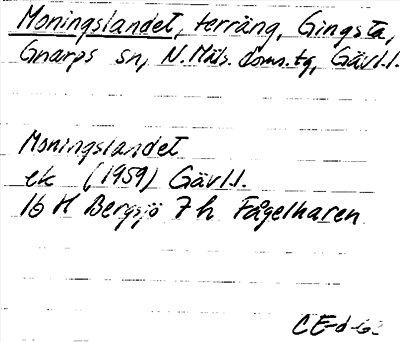 Moningslandet, terräng, Gingsta,
Gnarps sn, N. Häls. doms.tg, Gävl.l.
Moningslandet
ek (1959) Gävl.l.
16 H Bergsjö 7 h Fågelharen
CE-d-62